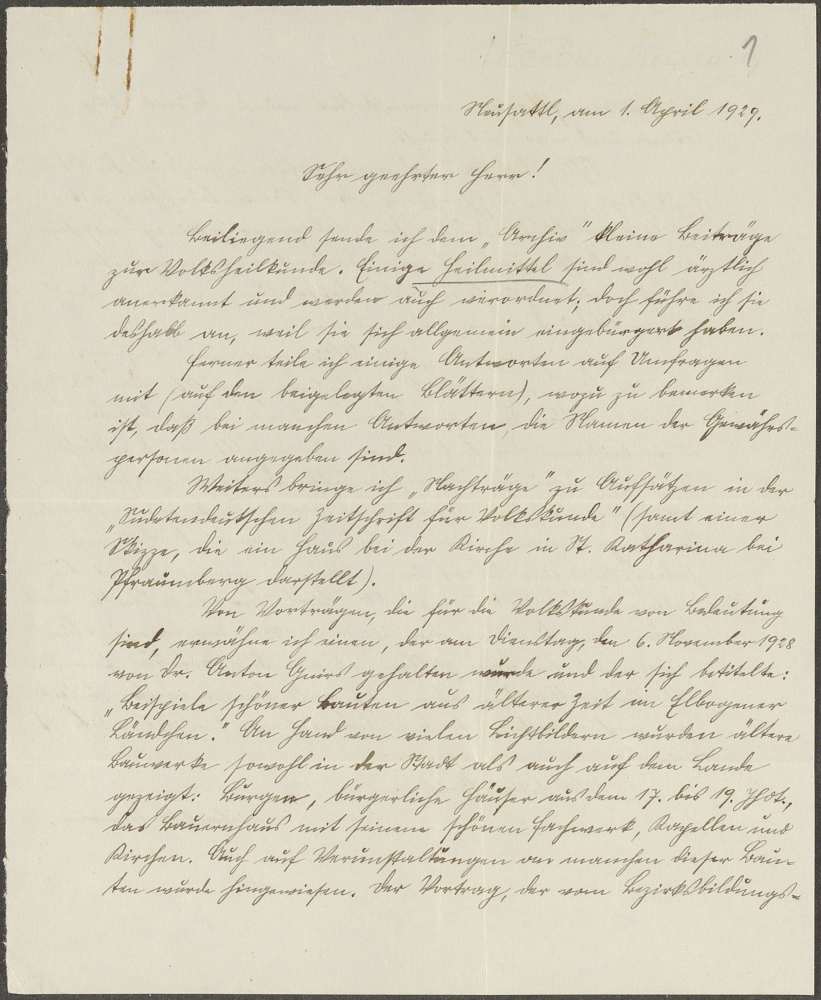 1
Neusattl, am 1. April 1929.
Sehr geehrter Herr!
Beiliegend sende ich dem „Archiv" kleine Beiträge
zur Volksheilkunde. Einige Heilmittel sind wohl ärztlich
anerkannt und werden auch verordnet; doch führe ich sie
deshalb an, weil sie sich allgemein eingebürgert haben.
Ferner teile ich einige Antworten auf Umfragen
mit (auf den beigelegten Blättern), wozu zu bemerken
ist, daß bei manchen Antworten, die Namen der Gewährs-
personen angegeben sind.
Weiters bringe ich „Nachträge" zu Aufsätzen in der
„Sudetendeutschen Zeitschrift für Volkskunde" (samt einer
Skizze, die ein Haus bei der Kirche in St. Katharina bei
Pfraumberg darstellt).
Von Vorträgen, die für die Volkskunde von Bedeutung
sind, erwähne ich einen, der am Dienstag, den 6. November 1928
von Dr. Anton Gnirs gehalten wurde und der sich betitelte:
„Beispiele schöner Bauten aus älterer Zeit im Elbogener
Ländchen." An Hand von vielen Lichtbildern wurden ältere
Bauwerke sowohl in der Stadt als auch auf dem Lande
gezeigt: Burgen, bürgerliche Häuser aus dem 17. bis 19. Jhdt.,
das Bauernhaus mit seinem schönen Fachwerk, Kapellen und
Kirchen. Auch auf Verunstaltungen an manchen dieser Bau-
ten wurde hingewiesen. Der Vortrag, der vom Bezirksbildungs-